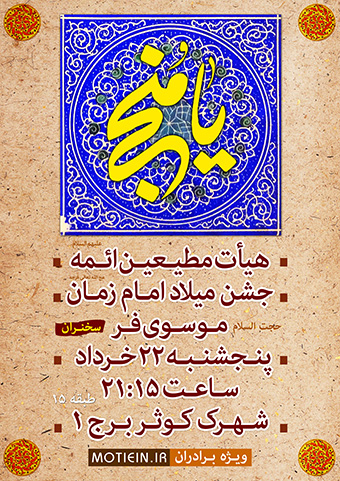 یا منجی
علیهم السلام
هیأت مطیعین ائمه
جشن میلاد امام زمان
حجت السلام موسوی فر سخنران
پنجشنبه ۲۲ خرداد
ساعت ۲۱:۱۵ طبقه ۱۵
شهرک کوثر برج ۱
ویژه برادران MOTIEIN.IR